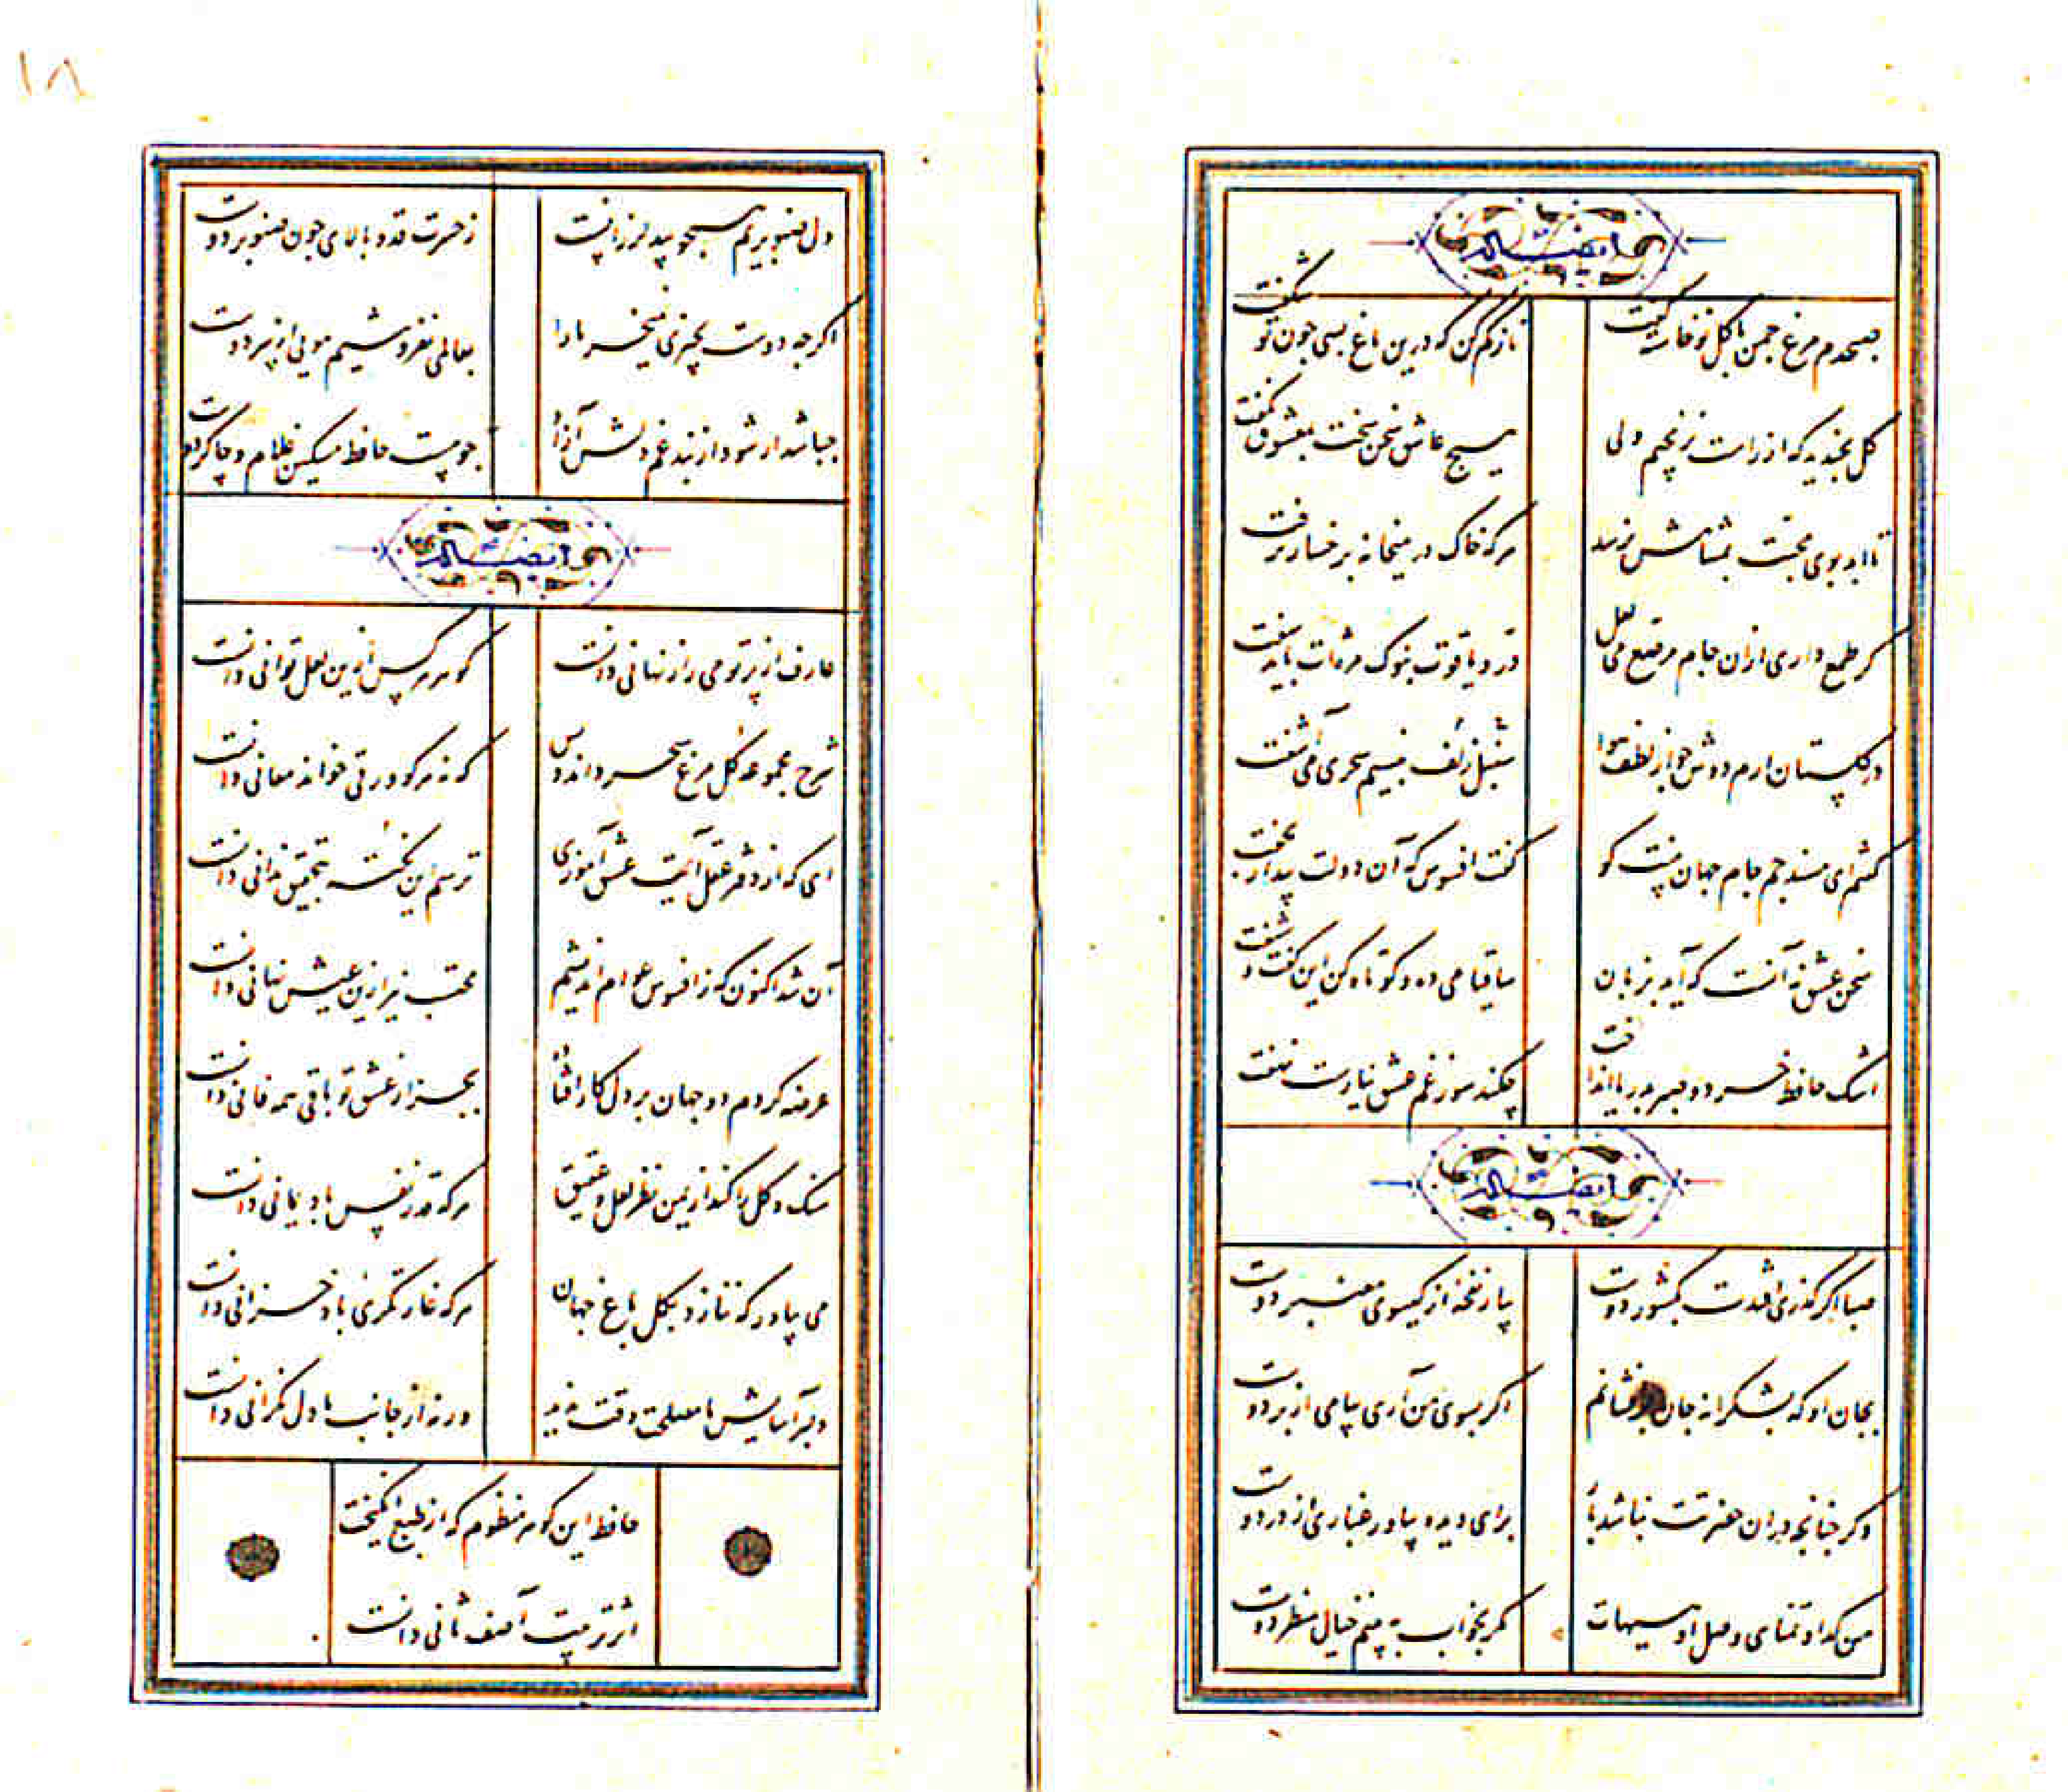 ۱۸
وله ایضاً
صبحدم مرغ چمن با کل نوخاسته کفت
ناز کم کن که درین باغ بسی چون تو شکفت
کل بخندید که از راست نرنجیم ولی
هیچ عاشق سخن سخت بمعشوق نکفت
تا ابد بوی محبت بمشامش نرسد
هرکه خاک در میخانه برخسار نرفت
کر طمع داری ازان جام مرصع می لعل
در و یاقوت بنوک مژه‌ات باید سفت
در کلستان ارم دوش چو از لطف هوا
سنبل زلف بنسیم سحری می‌آشفت
کفتم ای مسند جم جام جهان بینت کو
کفت افسوس که آن دولت بیدار بخفت
سخن عشق نه آنست که آید بزبان
ساقیا می ده و کوتاه کن این کفت و شنفت
اشک حافظ خرد و صبر بدریا انداخت
چکند سوز غم عشق نیارست نهفت
وله ایضاً
صبا اکر کذری افتدت بکشور دوست
بیار نفخه از کیسوی معنبر دوست
بجان او که بشکرانه جان برافشانم
اکر بسوی من آری پیامی از بر دوست
وکر چنانچه دران حضرتت نباشد بار
برای دیده بیاور غباری از در دوست
من کدا و تمنای وصل او هیهات
مکر بخواب به بینم خیال منظر دوست
دل صنوبریم همچو بید لرزانست
ز حسرت قد و بالای چون صنوبر دوست
اکرچه دوست بچیزی نمیخرد ما را
بعالمی نفروشیم مویی از سر دوست
چه باشد ار شود از بند غم دلش آزاد
چو هست حافظ مسکین غلام و چاکر دوست
وله ایضاً
عارف از پرتو می راز نهانی دانست
کوهر هر کس ازین لعل توانی دانست
شرح مجموعه کل مرغ سحر داند و بس
که نه هرکو ورقی خواند معانی دانست
ای که از دفتر عقل آیت عشق آموزی
ترسم این نکته بتحقیق ندانی دانست
آن شد اکنون که ز افسوس عوام اندیشم
محتسب نیز ازین عیش نهانی دانست
عرضه کردم دو جهان بر دل کار افتاده
بجز از عشق تو باقی همه فانی دانست
سنک و کل را کند از یمن نظر لعل و عقیق
هرکه قدر نفس باد یمانی دانست
می بیاور که ننازد بکل باغ جهان
هرکه غارتکری باد خزانی دانست
دلبر آسایش ما مصلحت وقت ندید
ورنه از جانب ما دل نکرانی دانست
حافظ این کوهر منظوم که از طبع انکیخت
اثر تربیت آصف ثانی دانست